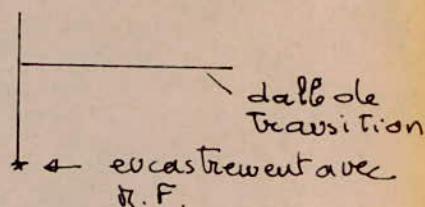 dalle de
transition
encastrement avec
M.F.